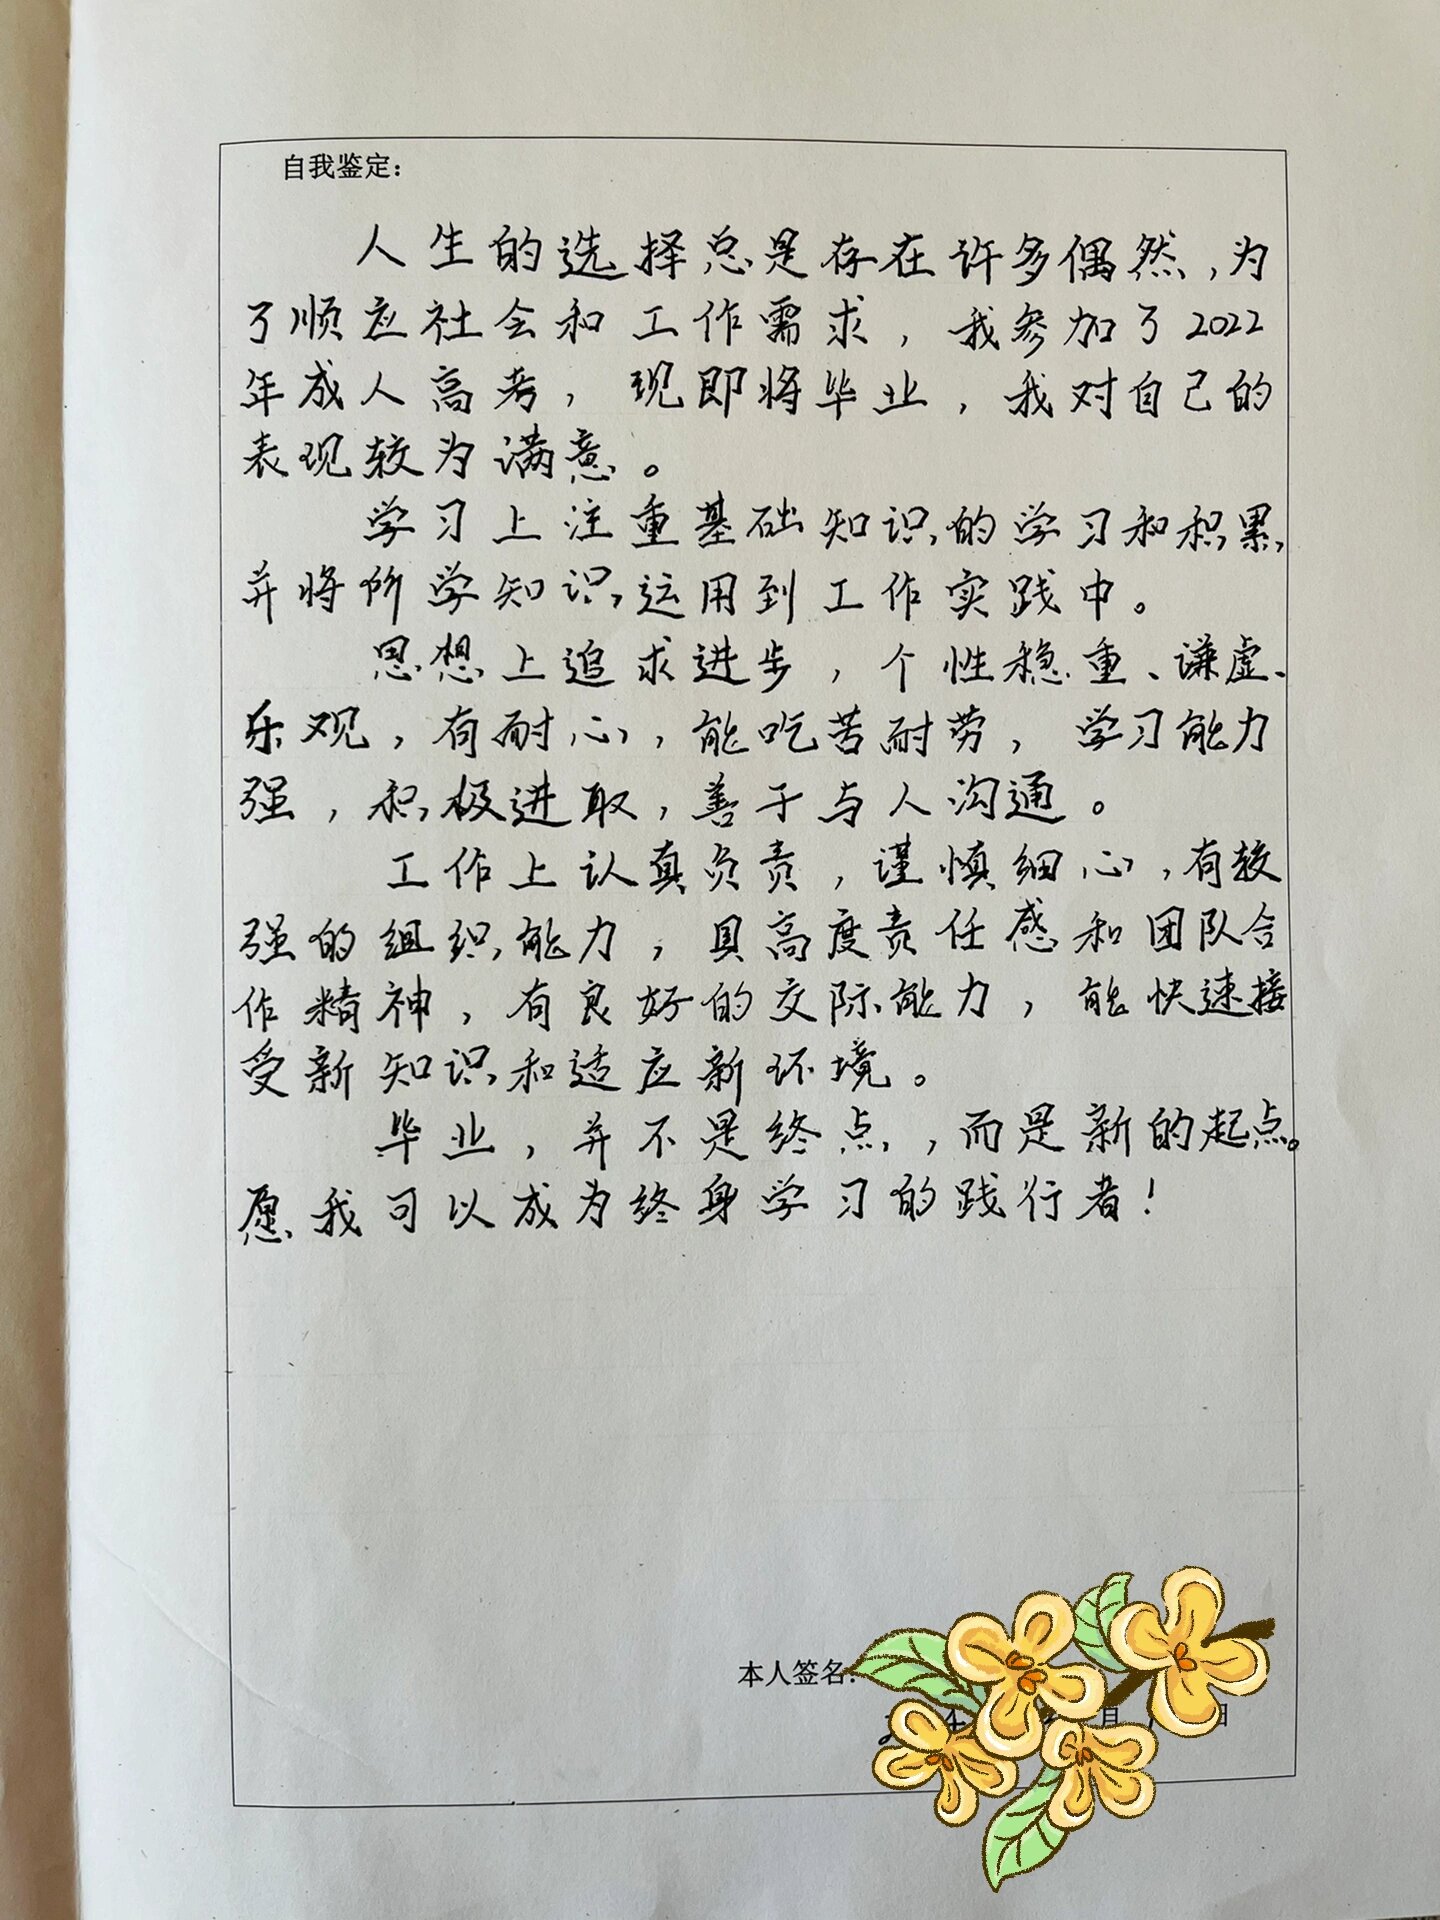 自我鉴定：
人生的选择总是存在许多偶然，为
了顺应社会和工作需求，我参加了2022
年成人高考，现即将毕业，我对自己的
表现较为满意。
学习上注重基础知识的学习和积累，
并将所学知识运用到工作实践中。
思想上追求进步，个性稳重、谦虚、
乐观，有耐心，能吃苦耐劳，学习能力
强，积极进取，善于与人沟通。
工作上认真负责，谨慎细心，有较
强的组织能力，具高度责任感和团队合
作精神，有良好的交际能力，能快速接
受新知识和适应新环境。
毕业，并不是终点，而是新的起点。
愿我可以成为终身学习的践行者！
本人签名：
月 日